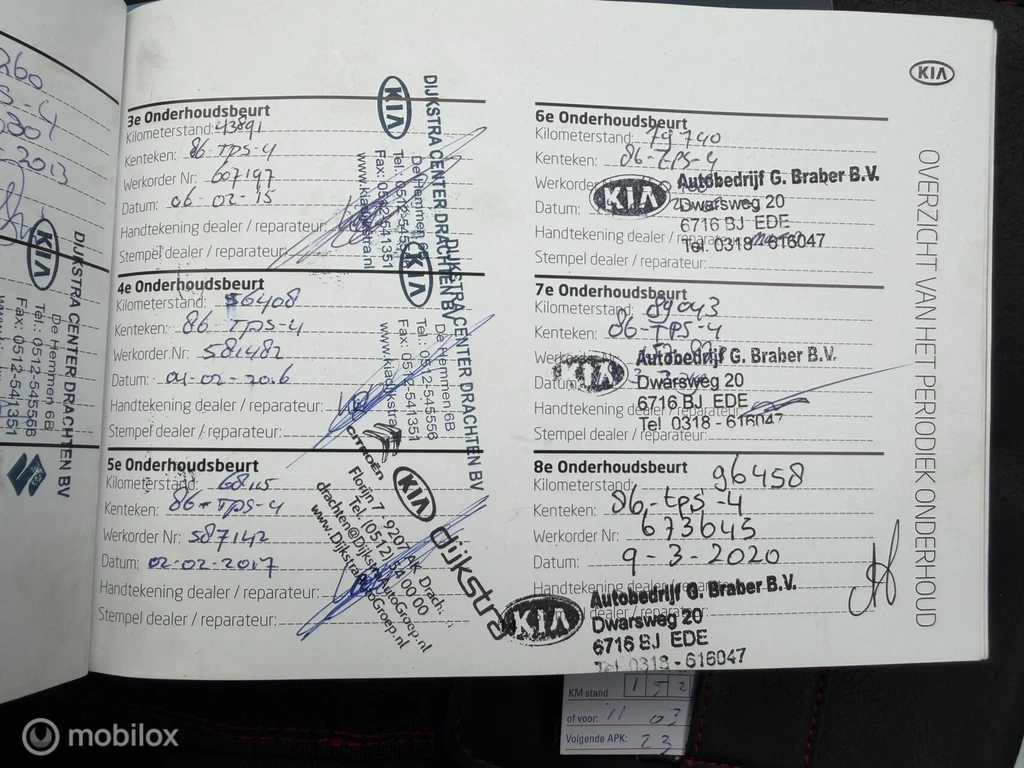 260
2013
KIA
DIJKSTRA CENTER DRACHTEN BV
De Hemmen 6B
Tel.: 0512-545556
Fax: 0512-541351
3e Onderhoudsbeurt
Kilometerstand: 43891
Kenteken: 86-TPS-4
Werkorder Nr: 607197
Datum: 06-02-15
Handtekening dealer / reparateur:
Stempel dealer / reparateur:
KIA
DIJKSTRA CENTER DRACHTEN BV
De Hemmen 6B
Tel.: 0512-545556
Fax: 0512-541351
www.kiadijkstra.nl
4e Onderhoudsbeurt
Kilometerstand: 56408
Kenteken: 86-TPS-4
Werkorder Nr: 581482
Datum: 04-02-2016
Handtekening dealer / reparateur:
Stempel dealer / reparateur:
KIA
DIJKSTRA CENTER DRACHTEN BV
De Hemmen 6B
Tel.: 0512-545556
Fax: 0512-541351
www.kiadijkstra.nl
5e Onderhoudsbeurt
Kilometerstand: 68115
Kenteken: 86-TPS-4
Werkorder Nr: 587142
Datum: 02-02-2017
Handtekening dealer / reparateur:
Stempel dealer / reparateur:
CITROËN
KIA
dijkstra
Florijn 7 - 9207 AK Drach.
Tel. (0512) 54 00 00
drachten@DijkstraAutoGroep.nl
www.DijkstraAutoGroep.nl
KIA
OVERZICHT VAN HET PERIODIEK ONDERHOUD
6e Onderhoudsbeurt
Kilometerstand: 79740
Kenteken: 86-tps-4
Werkorder
Datum:
Handtekening dealer / reparateur
Stempel dealer / reparateur:
KIA
Autobedrijf G. Braber B.V.
Dwarsweg 20
6716 BJ EDE
Tel. 0318 - 616047
7e Onderhoudsbeurt
Kilometerstand: 89043
Kenteken: 86-TPS-4
Werkorder Nr
Datum
Handtekening dealer / reparateur
Stempel dealer / reparateur:
KIA
Autobedrijf G. Braber B.V.
Dwarsweg 20
6716 BJ EDE
Tel 0318 - 616047
8e Onderhoudsbeurt
Kilometerstand 96458
Kenteken: 86-tps-4
Werkorder Nr: 673645
Datum: 9-3-2020
Handtekening dealer / reparateur
dealer / reparateur:
KIA
Autobedrijf G. Braber B.V.
Dwarsweg 20
6716 BJ EDE
Tel. 0318 - 616047
KM stand 1 5 2
of voor: 11 03
Volgende APK: 23
mobilox